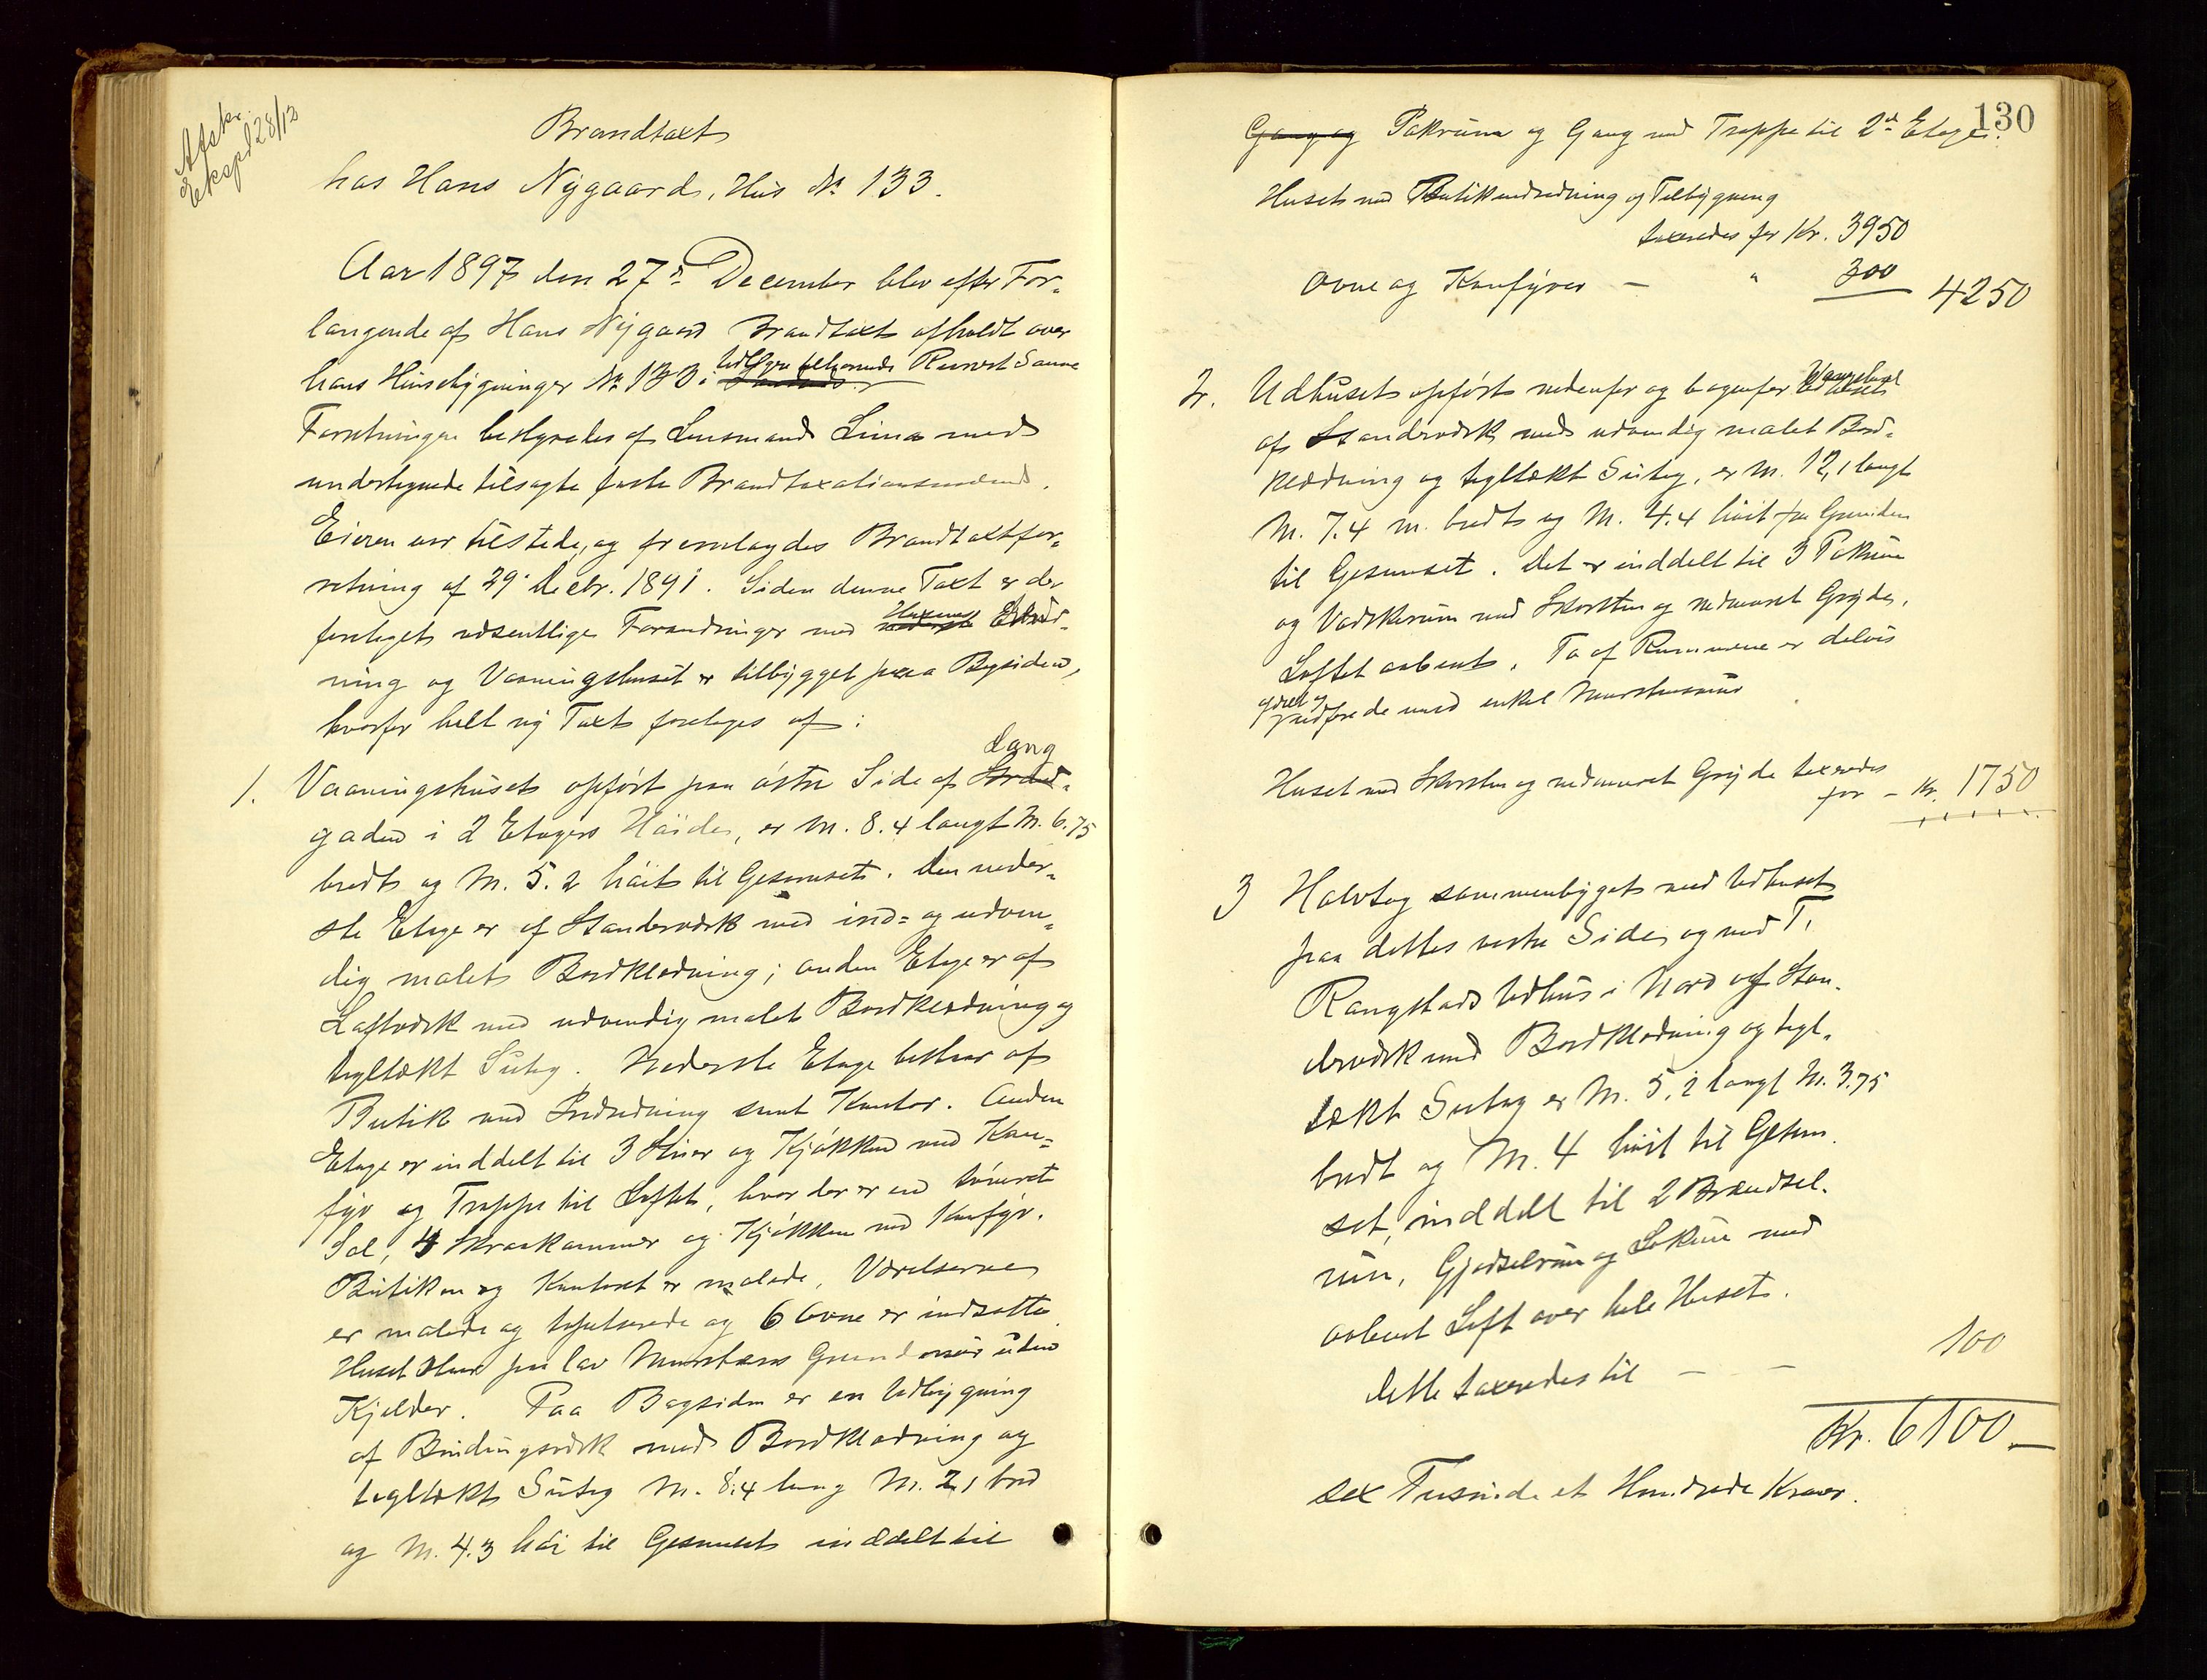 Afskr.
Eksped 28/12
Brandtaxt
hos Hans Nygaard, Hus No 133.
Aar 1897 den 27de December blev efter For-
langende af Hans Nygaard Brandtaxt afholdt over
hans Huusebygninger No 133 i tilhørende
Forretningen bestyredes af Lensmand Lima med
undertegnede tilsagte faste Brandtaxationsmænd.
Eieren var tilstede, og fremlagdes Brandtaxtfor-
retning af 29. Decbr. 1891. Siden denne Taxt er der
foretaget væsentlige Forandringer med Husenes Indred-
ning og Vaaningshuset er tilbygget paa Bagsiden,
hvorfor helt ny Taxt foretages af:
1. Vaaningshuset opført paa østre Side af Lang
Strand-
gaden i 2 Etagers Høide, er M. 8.4 langt M. 6.75
bredt og M. 5.2 høit til Gesimset. Den neder-
ste Etage er af Standerværk med ind= og udven-
dig malet Bordklædning; anden Etage er af
Laftværk med udvendig malet Bordklædning og
tegltækt Sutag. Nederste Etage bestaar af
Butik med Indredning samt Kontor. Anden
Etage er inddelt til 3 Stuer og Kjøkken med Kom-
fyr og Trappe til Loftet, hvor der er en tømret
Sal, 4 Skraakammer og Kjøkken med Komfyr.
Butiken og Kontoret er malede, Værelserne
er malede og tapetserede og 6 Ovne er indsatte.
Huset staar paa lav Murstens Grundmur uden
Kjelder. Paa Bagsiden er en Udbygning
af Bindingsværk med Bordklædning og
tegltækt Sutag M. 8.4 lang M. 2,1 bred
og M. 4.3 høi til Gesimset inddelt til
130
Gang og Pakrum og Gang med Trappe til 2den Etage.
Huset med Butikindredning og Tilbygning
taxeredes for Kr. 3950
Ovne og Komfyrer — " 300 4250
2. Udhuset opført nedenfor og bagenfor Vaaningshuset
af Standerværk med udvendig malet Bord-
klædning og tegltækt Sutag, er M. 12,1 langt
M. 7.4 m. bredt og M. 4.4 høit fra Grunden
til Gesimset. Det er inddelt til 3 Pakrum
og Vaskerum med Skorsten og nedmuret Gryde,
Loftet aabent. To af Rummene er delvis
udforede med enkel Murstensmur
Huset med Skorsten og nedmuret Gryde taxeredes
for — Kr. 1750
3 Halvtag sammenbygget med Udhuset
paa dettes vestre Side og med T.
Rangstads Udhus i Nord af Stan-
derværk med Bordklædning og tegl-
tækt Sutag er M. 5,2 langt M. 3.75
bredt og M. 4 høit til Gesim-
set, inddelt til 2 Brændsel-
rum, Gjødselrum og Lokum med
aabent Loft over hele Huset.
dette taxeredes til — — 100
Kr. 6100 —
sex Tusinde et Hundrede Kroner.